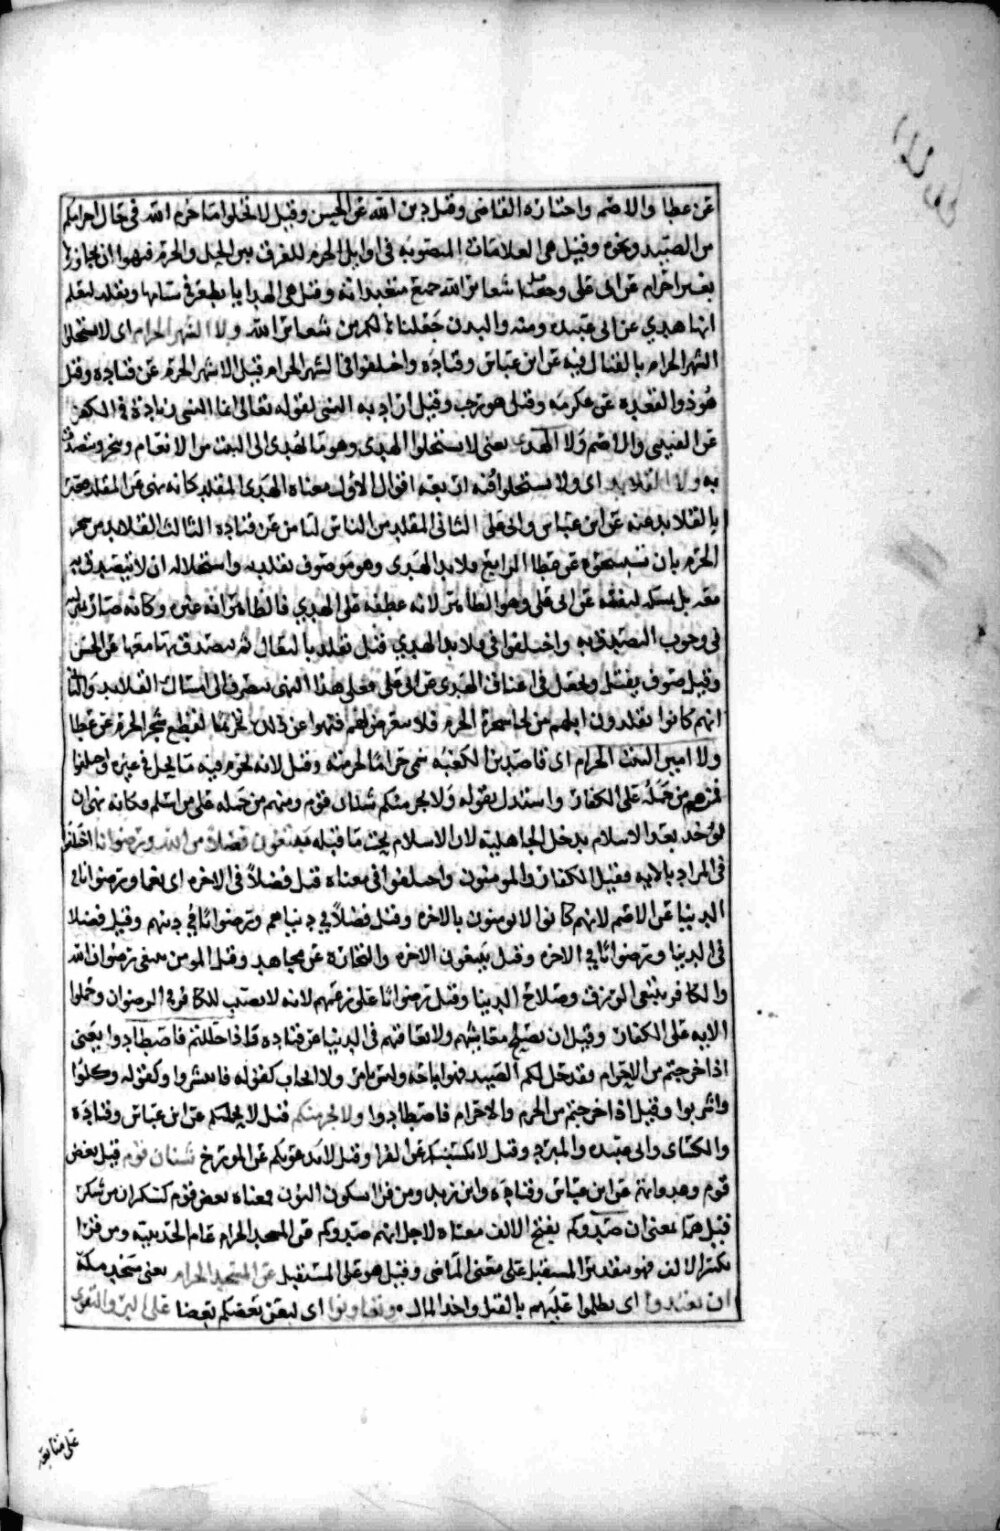 عن عطا والاصم واختاره القاضى وقيل دين الله عن الحسن وقيل لا تحلوا ما حرم الله فى حال احرامكم
من الصيد ونحوه وقيل هى العلامات المنصوبه فى اوايل الحرم للفرق بين الحل والحرم فنهوا ان يجاوزوا
بغير احرام عن ابى على وحقيقة شعاير الله جمع متعبداته وقيل هى الهدايا يطعن فى سنامها ويقلد ليعلم
انها هدي عن ابى عبيده ومنه والبدن جعلناها لكم من شعاير الله ولا الشهر الحرام اى لا تستحلوا
الشهر الحرام بالقتال فيه عن ابن عباس وقتاده واختلفوا فى الشهر الحرام قيل الاشهر الحرم عن قتاده وقيل
هو ذو القعده عن عكرمه وقيل هو رجب وقيل اراد به النسى لقوله تعالى انما النسى زيادة فى الكفر
عن القتيبى والاصم ولا الهدى يعنى لا تستحلوا الهدى وهو ما يهدى الى البيت من الانعام وينحر ويتصدق
به ولا القلايد اى ولا تستحلوا فيه اربعه اقوال الاول معناه الهدى المقلد كانه نهى عن المقلد
بالقلايد عن ابن عباس وابى على الثانى المقلد من الناس عن قتاده الثالث القلايد من شجر
الحرم بان عن عطا الرابع قلايد الهدى وهو صوف تقلد به واستحلاله ان لا يتصدق به
عن ابى على وهو الظاهر لانه عطفه على الهدي فالظاهر انه غيره وكانه
فى وجوب التصدق به واختلفوا فى قلايد الهدي فقيل تقلد بالنعال ثم يتصدق بها معها عن الحسن
وقيل صوف يفتل ويجعل فى اعناق الهدى عن ابى على وعلى هذا النهى ينصرف الى القلايد
انهم كانوا يقلدون ابلهم من لحا شجرة الحرم فلا يتعرض لهم فنهوا عن ذلك ليلا يقطع شجر الحرم عن عطا
ولا امين البيت الحرام اى قاصدين الكعبه سمى حراما لحرمته وقيل لانه يحرم فيه ما يحل فى غيره واختلفوا
فمنهم من حمله على الكفار واستدل بقوله ولا يجرمنكم شنان قوم ومنهم من حمله على من اسلم فكانه نهى ان
يؤخذ بعد الاسلام بدخل الجاهلية لان الاسلام يجب ما قبله يبتغون فضلا من الله ورضوانا اختلفوا
فى المراد بالايه فقيل الكفار والمومنون واختلفوا فى معناه قيل فضلاً فى الاخره ورضوانا فى
الدنيا عن الاصم لانهم كانوا لا يومنون بالاخره وقيل فضلاً فى دنياهم ورضوانا فى دينهم وقيل فضلا
فى الدنيا ورضوانا فى الاخره وقيل يبتغون الاخره والتجاره عن مجاهد وقيل المومن يبتغى رضوان الله
والكافر يبتغى الرزق وصلاح الدنيا وقيل رضوانا على زعمهم لانه لا نصيب للكافر فى الرضوان وحملوا
الايه على الكفار وقيل ان يصلح معايشهم ولا يعاقبهم فى الدنيا عن قتاده واذا حللتم فاصطادوا يعنى
اذا خرجتم من الاحرام فقد حل لكم الصيد فهو اباحه وليس بامر ولا ايجاب كقوله فانتشروا وكقوله وكلوا
واشربوا وقيل اذا خرجتم من الحرم والاحرام فاصطادوا ولا يجرمنكم قيل لا يحملنكم عن ابن عباس وقتاده
والكسائى وابى عبيده والمبرد وقيل لا يكسبنكم عن الفرا وقيل لا يدعونكم عن المورخ شنان قوم قيل بغض
قوم وعداوتهم عن ابن عباس وقتاده وابن زيد ومن قرا بسكون النون فمعناه بغض قوم كسكران من سكر
قيل هما بمعنى ان صدوكم بفتح الالف معناه لاجل انهم صدوكم عن المسجد الحرام عام الحديبيه ومن قرا
بكسر الالف فهو بتقدير المستقبل على معنى الماضى وقيل هو على المستقبل عن المسجد الحرام يعنى مسجد مكة
ان تعتدوا اى تظلموا عليهم بالقتل واخذ المال وتعاونوا اى ليعن بعضكم بعضا على البر والتقوى
على متابعة